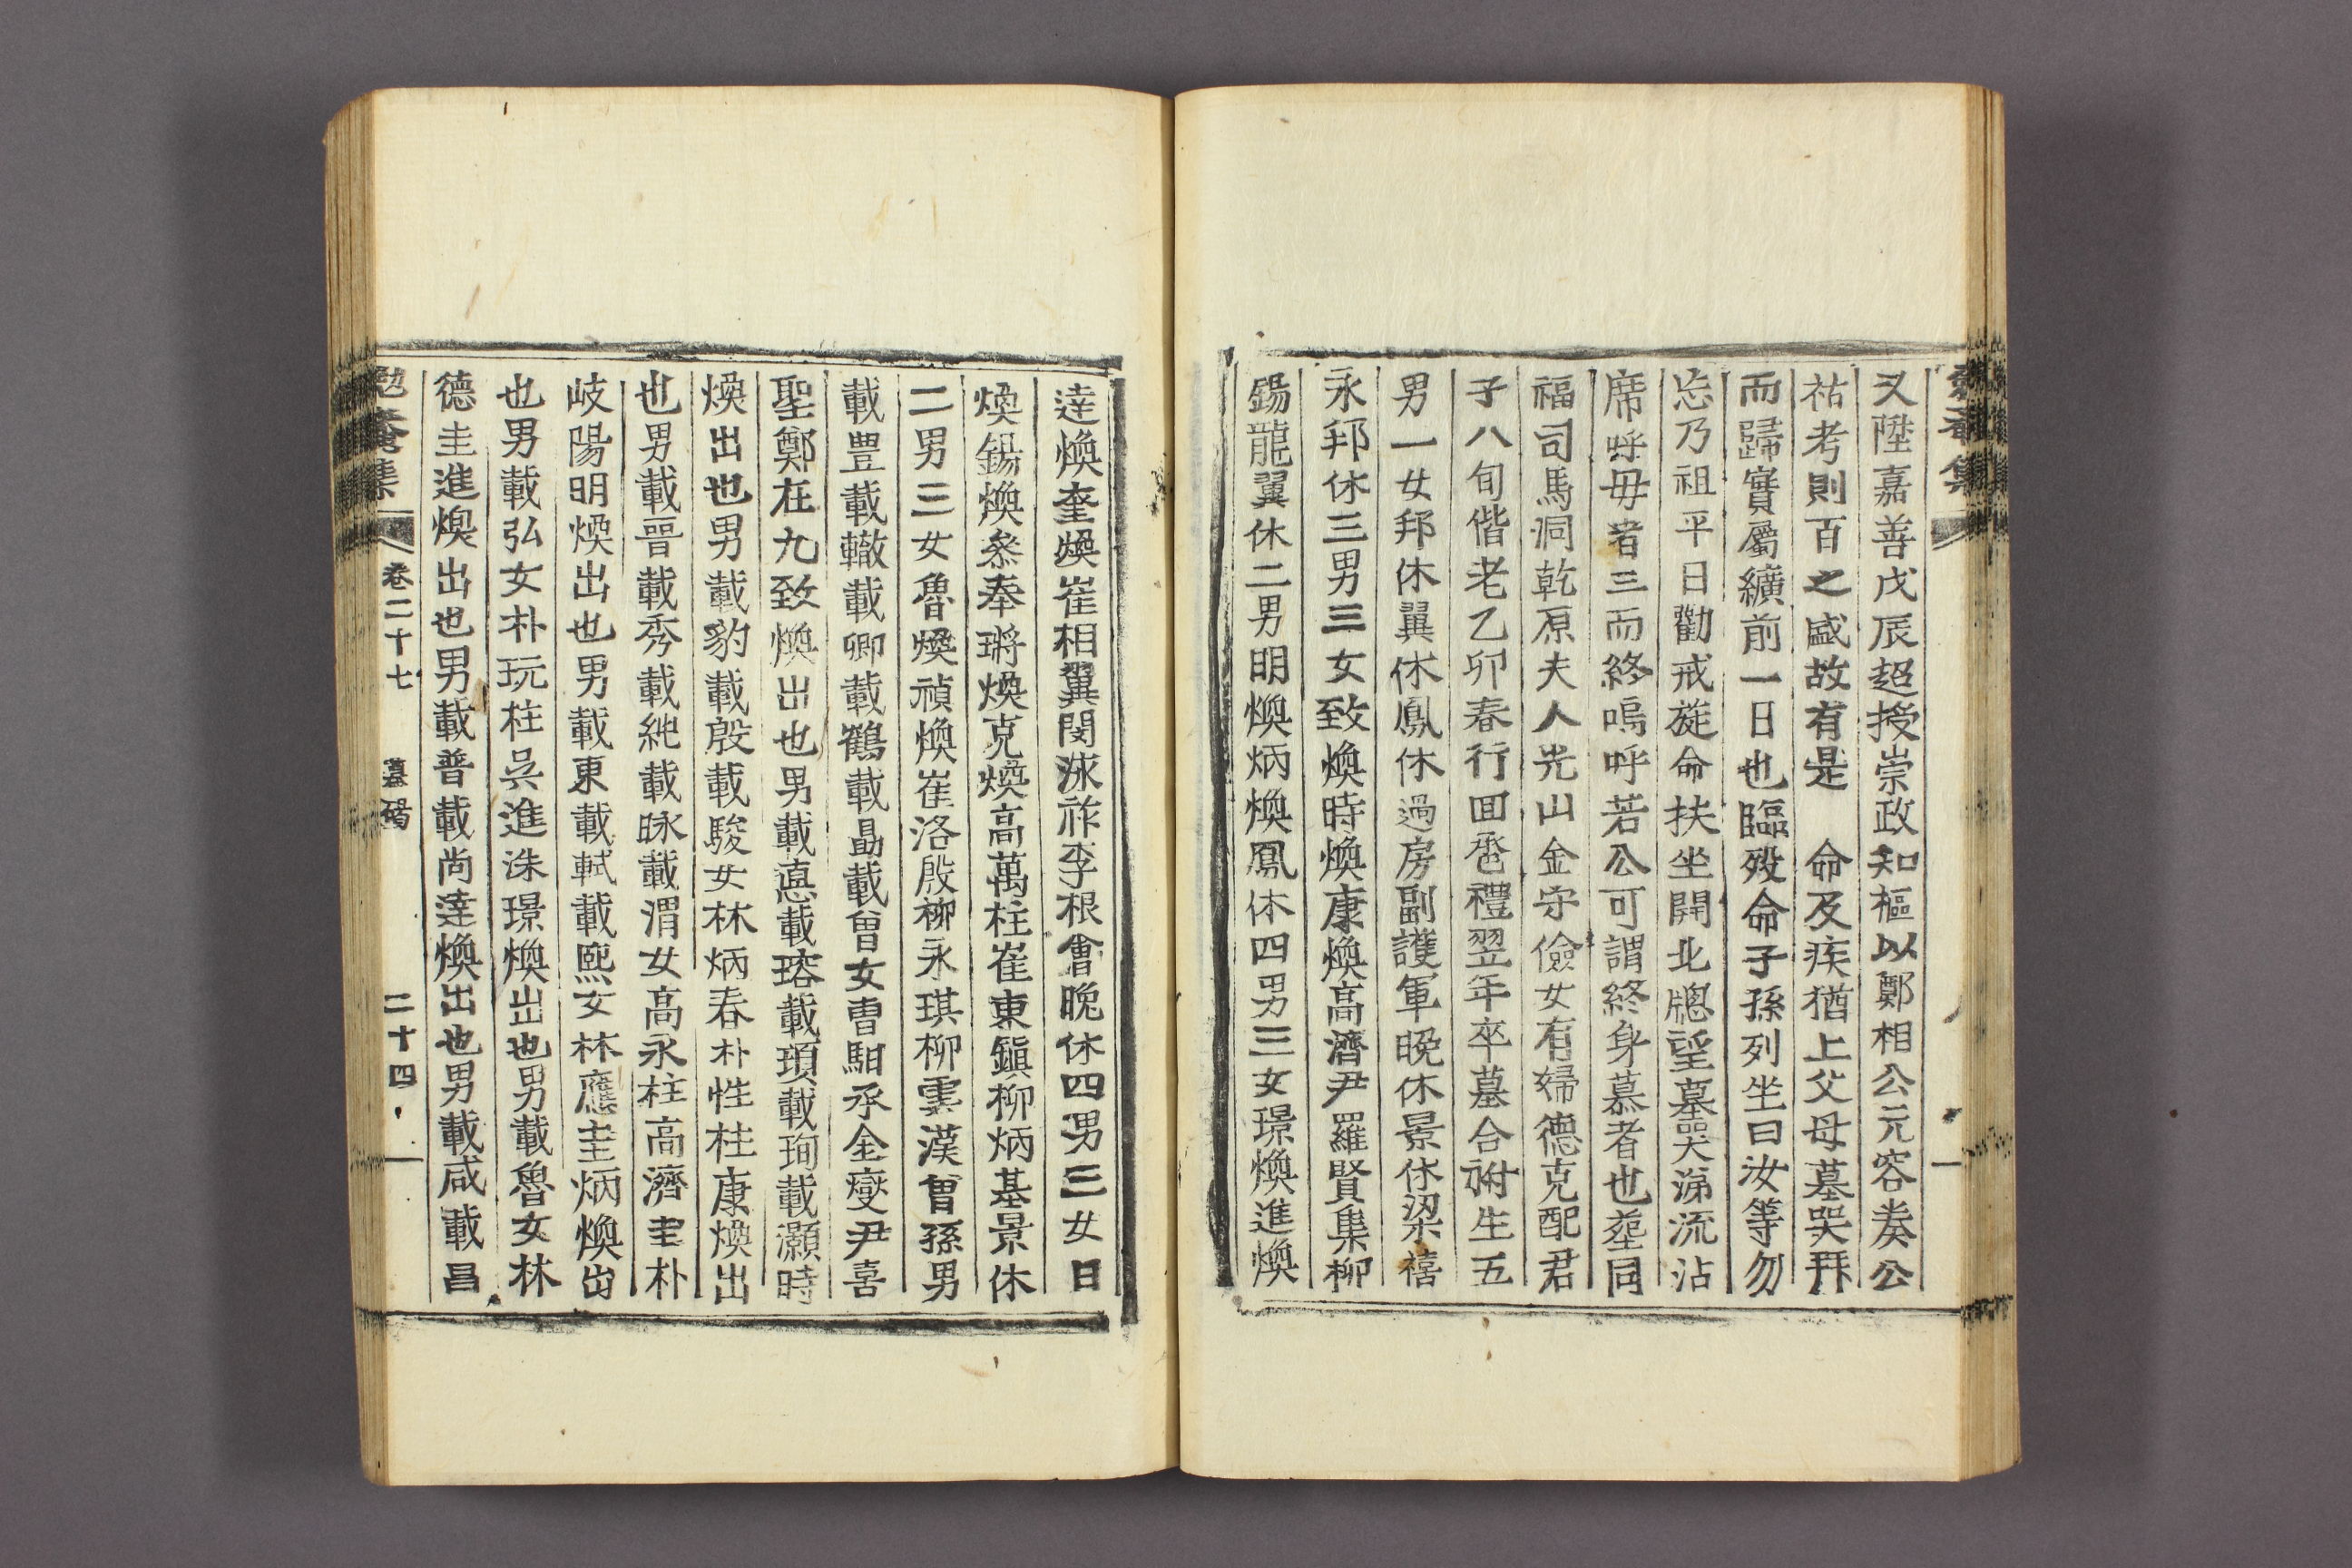 勉菴集
又陞嘉善戊辰超授崇政知樞以鄭相公元容奏公
祐考則百之盛故有是 命及疾猶上父母墓哭拜
而歸實屬纊前一日也臨歿命子孫列坐曰汝等勿
忘乃祖平日勸戒旋命扶坐開北牕望墓哭涕流沾
席呼母者三而終嗚呼若公可謂終身慕者也塟同
福司馬洞乾原夫人兆山金守儉女有婦德克配君
子八旬偕老乙卯春行回巹禮翌年卒墓合祔生五
男一女邦休翼休鳳休過房副護軍晚休景休梁禧
永邦休三男三女致煥時煥康煥高濟尹羅賢集柳
錫龍翼休二男明煥炳煥鳳休四男三女璟煥進煥
達煥奎煥崔相翼閔泳祚李根會晚休四男三女日
煥錫煥叅奉瑺煥克煥高萬柱崔東鎭柳炳基景休
二男三女魯煥禎煥崔洛殷柳永琪柳雲漢曾孫男
載豊載轍載卿載鶴載勗載曾女曺馹承金燮尹喜
聖鄭在九致煥出也男載悳載瑢載頊載珣載灝時
煥出也男載豹載殷載駿女林炳春朴性柱康煥出
也男載晋載秀載純載昹載渭女高永柱高濟圭朴
岐陽明煥出也男載東載軾載熙女林應圭炳煥出
也男載弘女朴玩柱吳進洙璟煥出也男載魯女林
德圭進煥出也男載普載尚達煥出也男載咸載昌
勉菴集 卷二十七 墓碣 二十四